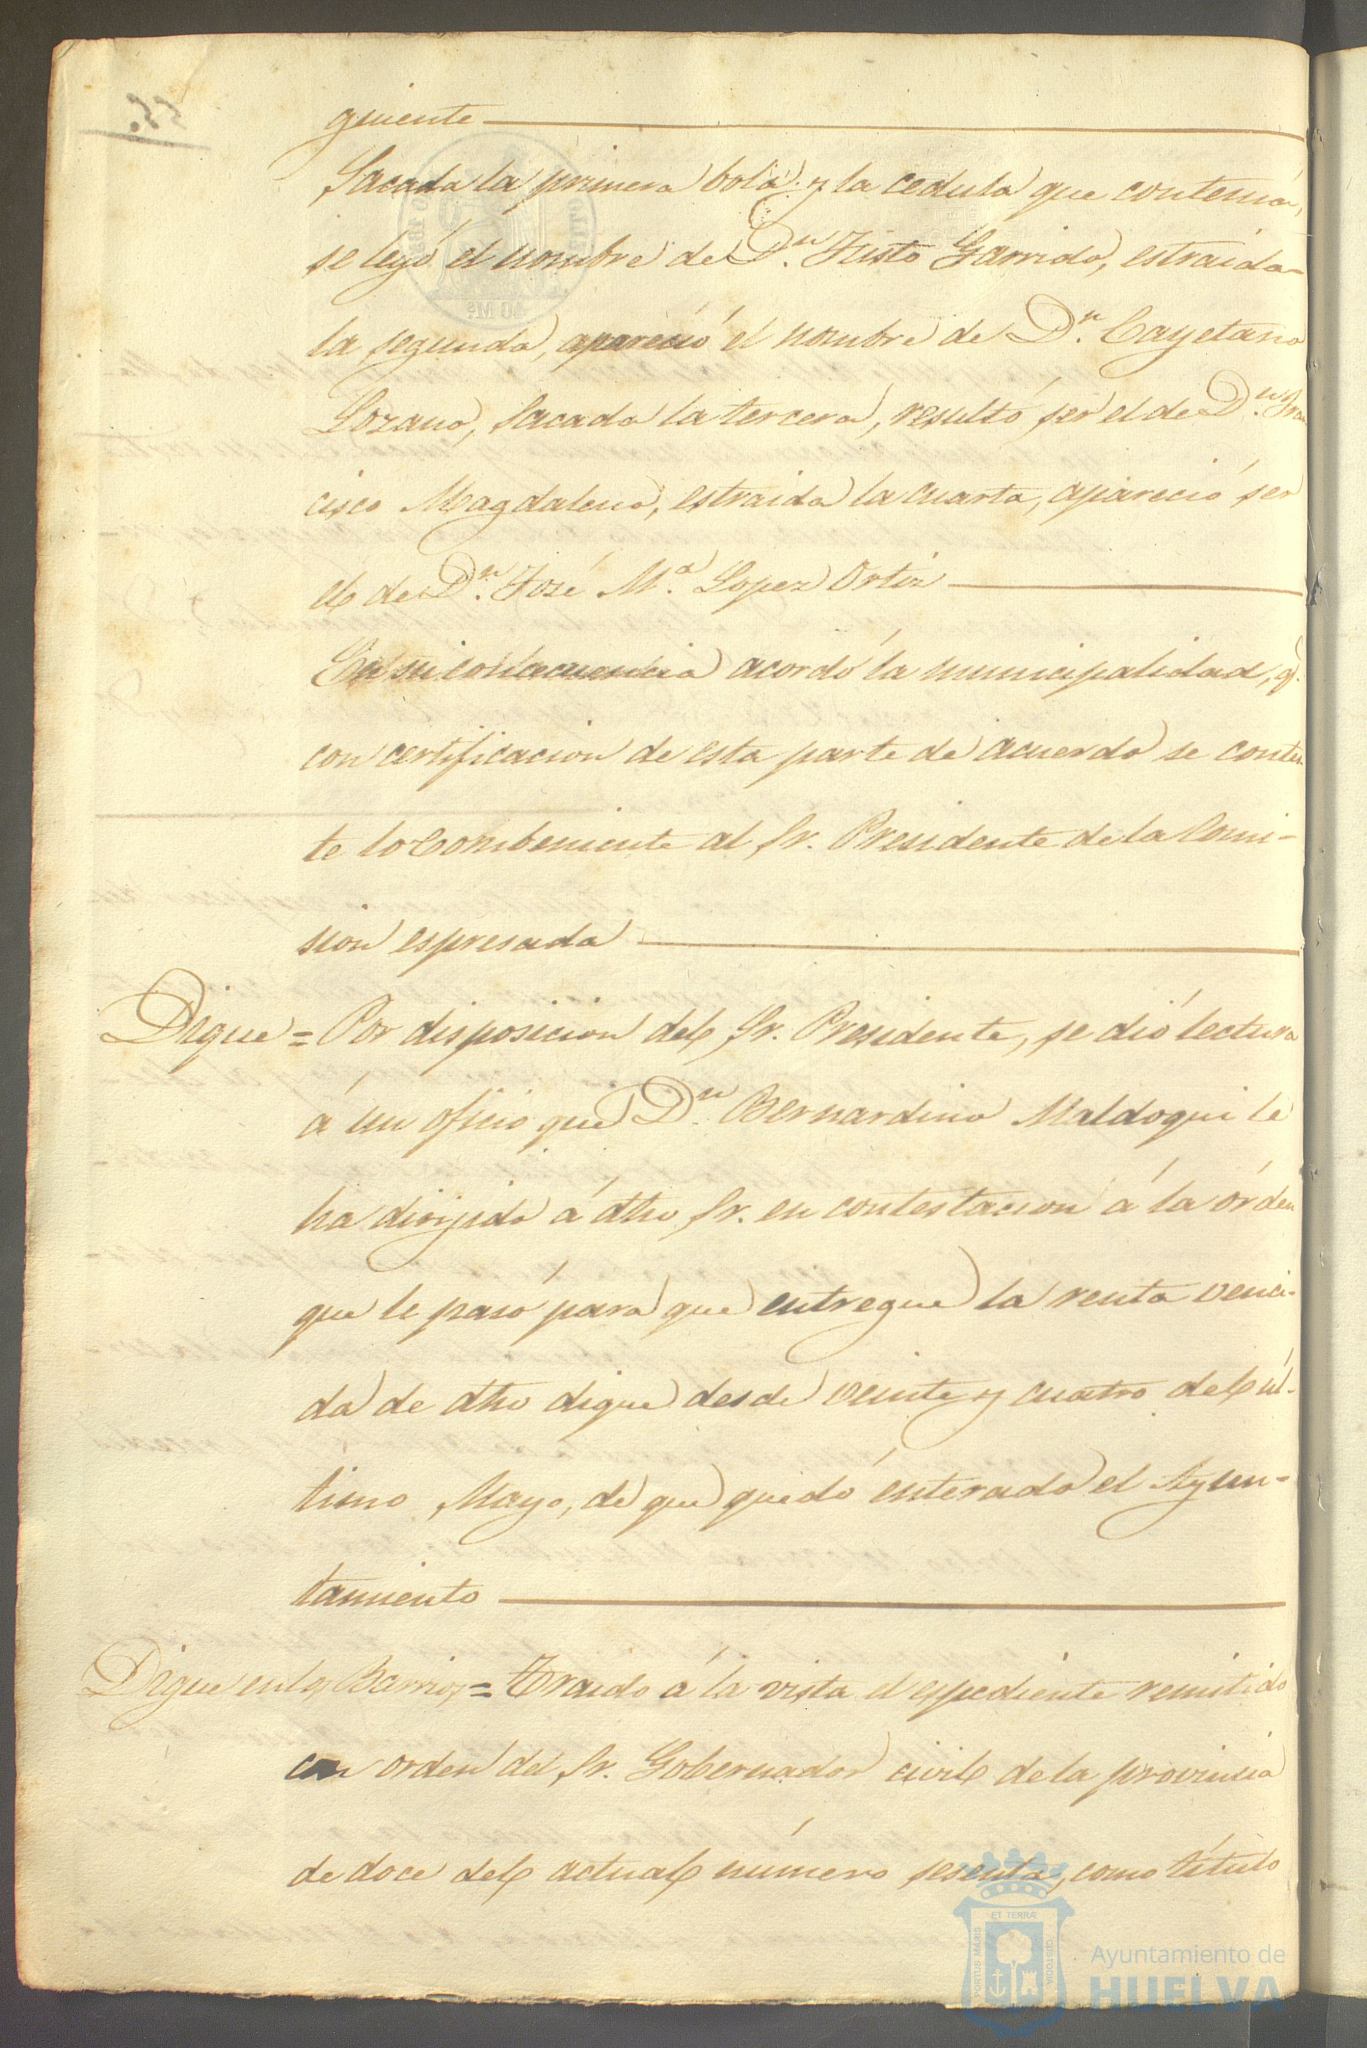 guiente
Sacada la primera bola y la cedula que contenia,
se leyó el nombre de Dn. Justo Garrido, estraida
la segunda, apareció el nombre de Dn. Cayetano
Lozano, sacada la tercera, resultó ser el de Dn. Fran
cisco Magdaleno, estraida la cuarta, apareció ser
el de Dn. José Ma. Lopez Ortiz
En su consecuencia acordó la municipalidad, q.
con certificacion de esta parte de acuerdo se contes
te lo combeniente al Sr. Presidente de la Comi-
sion espresada
Dique = Por disposicion del Sr. Presidente, se dió lectura
á un oficio que Dn. Bernardino Maldoqui le
ha dirijido á dho Sr. en contestacion á la órden
que le pasó para que entregue la renta venci-
da de dho dique desde veinte y cuatro del úl-
timo Mayo, de que quedó enterado el Ayun-
tamiento
Dique en los Barrios = Traido á la vista el espediente remitido
con orden del Sr. Gobernador civil de la provincia
de doce del actual número sesenta, como título
ET TERRÆ
PORTUS MARIS
CUSTODIA
Ayuntamiento de
HUELVA